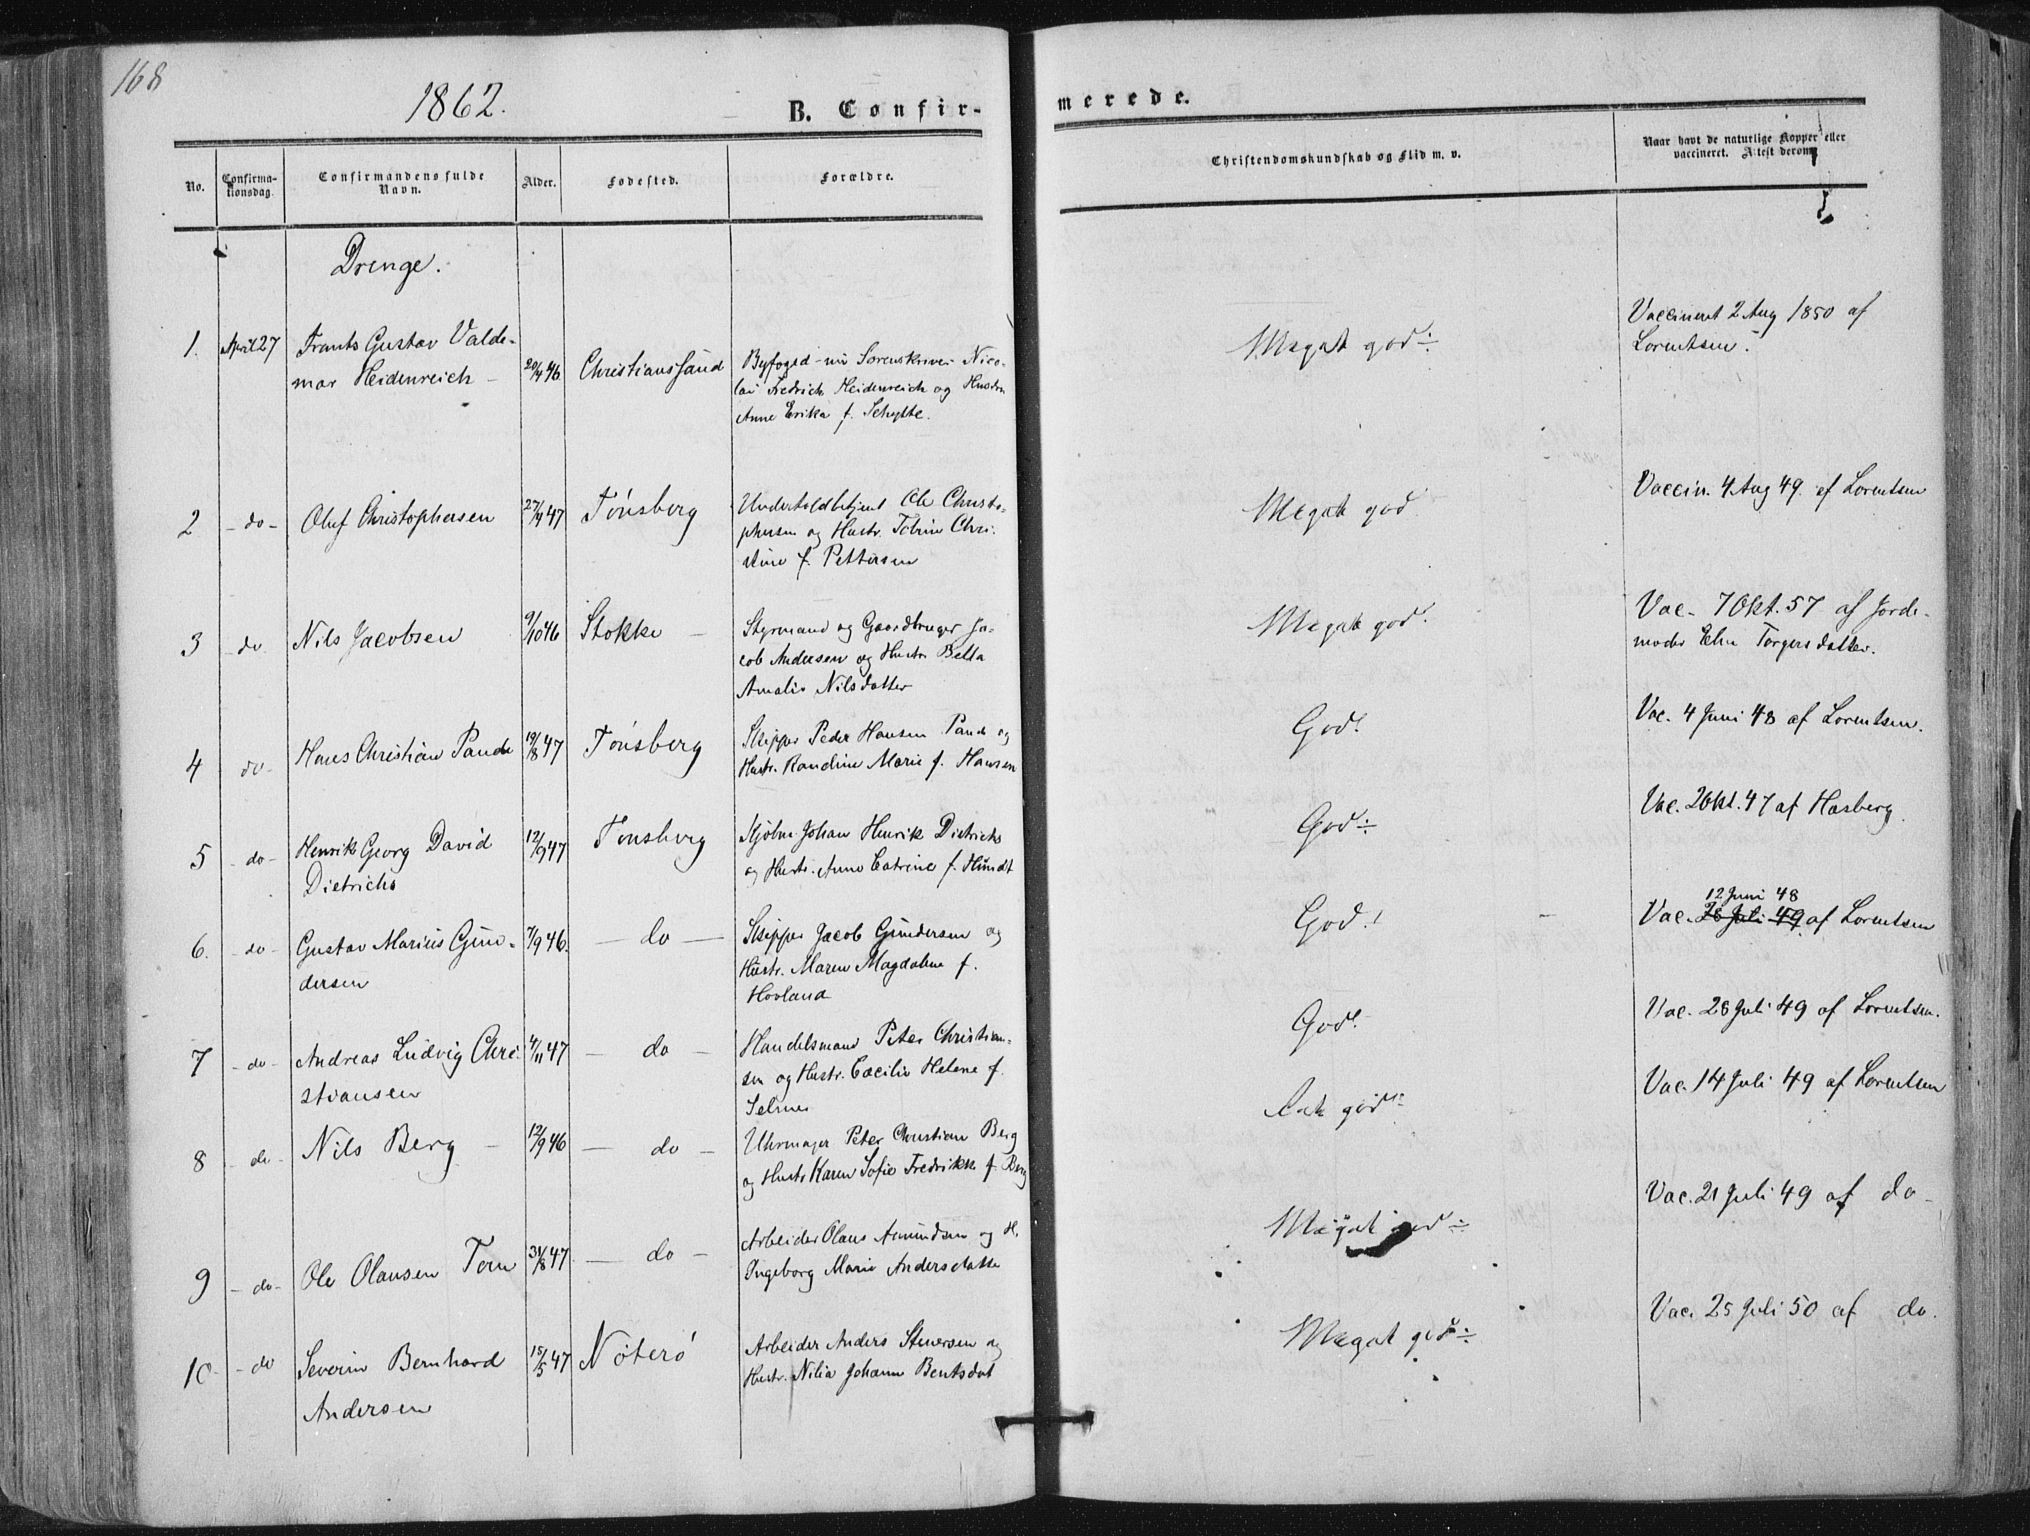 168
1862.
B. Confir-
merede.
No.
Confirma-
tionsdag.
Confirmandens fulde
Navn.
Alder.
Fødested.
Forældre.
Christendomskundskab og Flid m. v.
Naar havt de naturlige Kopper eller
vaccineret. Attest derom.
Drenge.
1. April 27 Frants Gustav Valde-
mar Heidenreich - 20/4 46 Christianssund
Byfoged Sorenskriver Nico-
lai Fredrich Heidenreich og Hustru
Anne Erika f. Schytte.
Meget god ÷
Vaccineret 2 Aug 1850 af
Lorentsen.
2 - do - Oluf Christophersen 27/4 47 Tönsberg
Underto​ldbetjent Ole Christo-
phersen og Hustr. Tobine Chri-
stine f. Pettersen
Meget god
Vaccin. 4 Aug 49. af Lorentsen
3 - do Nils Jacobsen 9/10 46 Stokke -
Styrmand og Gaardbruger Ja-
cob Andersen og Hustr Betta
Amalie Nilsdatter
Meget god.
Vac. 7 Okt. 57 af Jorde-
moder Elen Torgersdatter.
4 do - Hans Christian Pande 19/8 47 Tönsberg
Skipper Peder Hansen Pande og
Hustr. Randine Marie f. Hansen
God.
Vac. 4 Juni 48 af Lorentsen.
5 - do - Henrik Georg David
Dietrichs 12/9 47 Tonsberg
Kjøbm. Johan Henrik Dietrichs
og Hustr. Anne Catrine f. Hundt
God ÷
Vac. 2 Okt. 47 af Hasberg
6. - do - Gustav Marius Gun-
dersen 7/9 46. - do -
Skipper Jacob Gundersen og
Hustr. Maren Magdalene f.
Hovland
God.!
12 Juni 48
Vac. 28 Juli 49. af Lorentsen
7 - do - Andreas Ludvig Chri-
stiansen 4/11 47 - do -
Handelsmand Peter Christian-
sen og Hustr. Cæcilie Helene f.
Selmer
God.
Vac. 28 Juli 49 af Lorentsen.
8 - do - Nils Berg - 12/9 46 - do -
Uhrmager Peter Christian Berg
og Hustr Karen Sofie Fredrikke f. Berg
god
Vac. 14 Juli 49 af Lorentsen
9 - do - Ole Olausen Torn 31/8 47 - do -
Arbeider Olaus Amundsen og H.
Ingeborg Marie Andersdatte
Meget god ÷
Vac. 21 Juli 49 af do -
10. - do Severin Bernhard
Andersen 15/5 47 Nöterö
Arbeider Anders Stenersen og
Hustr. Nilia Johanne Bentsdat
Meget god ÷
Vac. 25 Juli 50 af do.